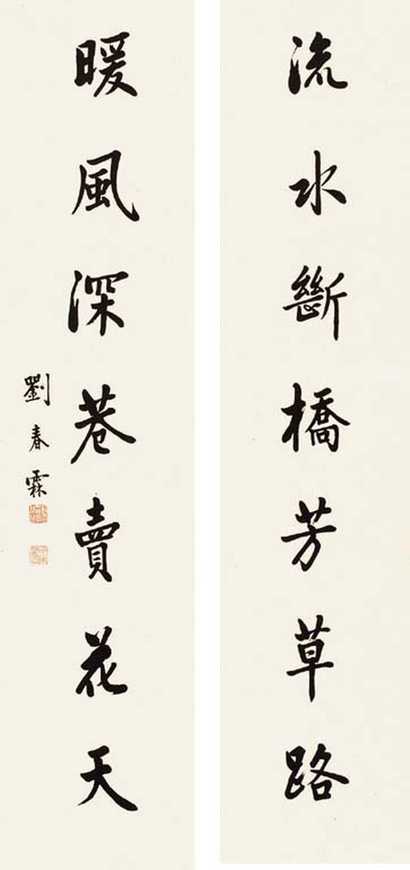 流水斷橋芳草路
暖風深巷賣花天
劉春霖